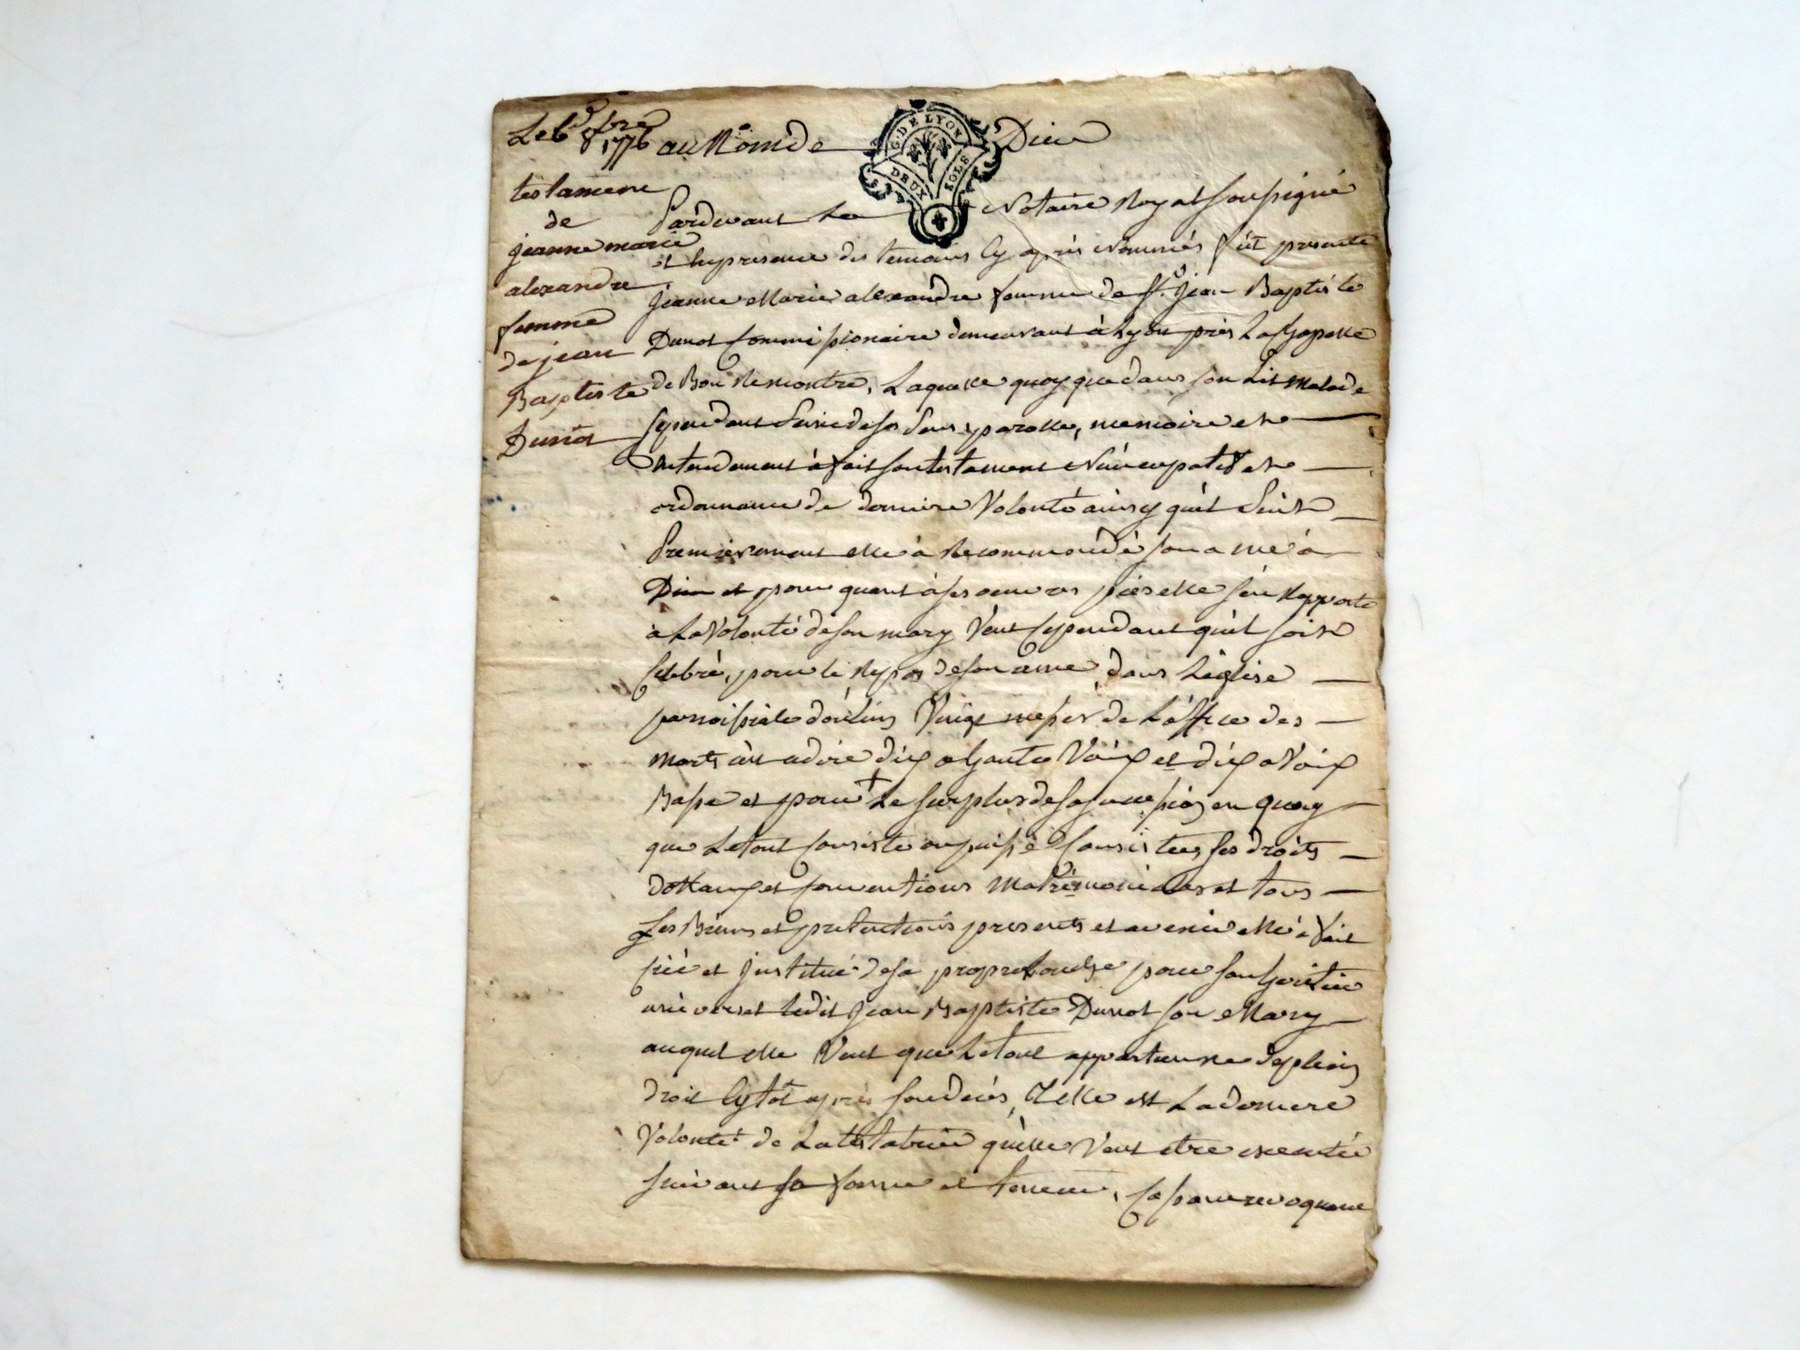 Le 6 8bre 1776
testament
de
jeanne marie
alexandre
femme
de jean
Baptiste
Dunot
au Nom de Dieu
G. DE LYON
DEUX SOLS
Pardevant Le Notaire Royal soussigné
et En presence des temoins cy après Nommés fut presente
jeanne Marie alexandre femme de Sr. jean Baptiste
Dunot Commissionaire demeurant à Lyon près La Chapelle
de Bon Rencontre, Laquelle quoyque dans son Lit Malade
Cependant Saine de ses Sens, parolle, memoire et
Entendement à fait son testament Nuncupatif et
ordonnance de derniere Volonté ainsy qu'il Suit
Premierement elle à Recommendé son ame à
Dieu et pour quant à ses oeuvres pies elle s'en Rapporte
à La Volonté de son mary Veut Cependant qu'il soit
Celebré, pour le Repos de son ame, dans L'eglise
paroissiale d'oulins Vingt messes de L'office des
morts àsscavoir dix a haute Voix et dix a Voix
Basse et pour Le surplus de sa succession en quoy
que Le tout Consiste ou puisse Consister ses droits
dottaux et Conventions Matrimoniales et tous
ses Biens et pretentions presents et avenir elle à fait
créé et Institué de sa propre bouche pour son heritier
universel ledit jean Baptiste Dunot son Mary
auquel elle Veut que Le tout appartienne de plein
droit Sytot après son decès, Telle est La derniere
Volonté de La testatrice qu'elle Veut etre executée
suivant sa forme et teneur, Cassant revoquant